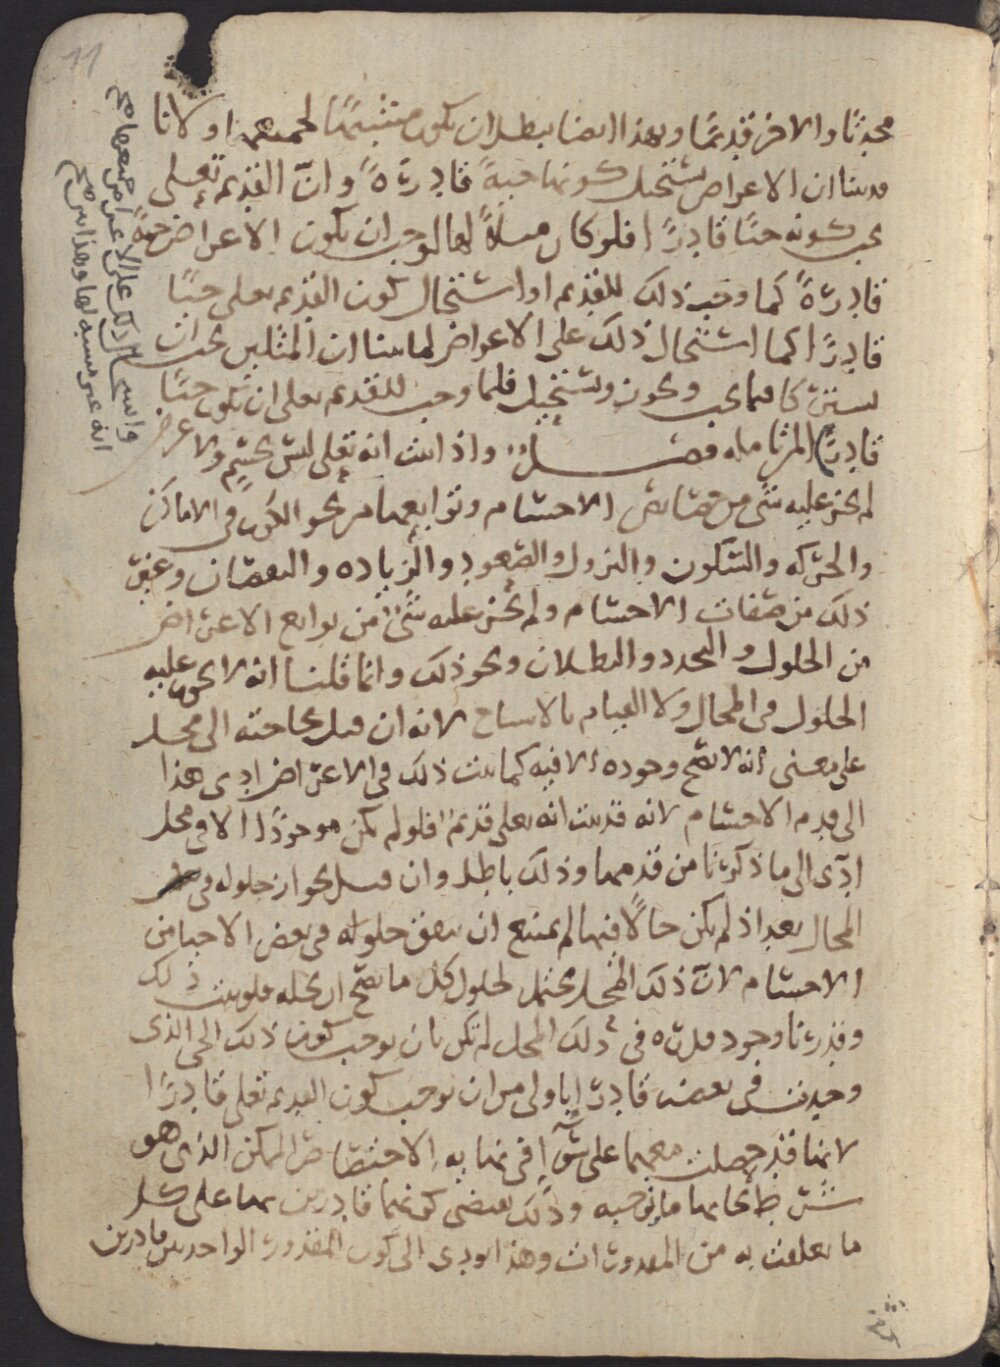 11
محدثا والاخر قديما وهذا ايضا يبطل ان يكون مشبها لجميعها ولانا
قد بينا ان الاعراض يستحيل كونها حية قادرة وان القديم تعلى
يجب كونه حيا قادرا فلو كان مثلا لها لوجب ان يكون الاعراض حية
قادرة كما وجب ذلك للقديم او استحال كون القديم تعلى حيا
قادرا كما استحال ذلك على الاعراض لما بينا ان المثلين يجب ان
يشتركا فيما يجب ويجوز ويستحيل فلما وجب للقديم تعلى ان يكون حيا
قادرا لم تماثله فصل واذا ثبت انه تعلى ليس بجسم ولا عرض
لم يجز عليه شي من خصايص الاجسام وتوابعها من نحو الكون في الاماكن
والحركة والسكون والنزول والصعود والزيادة والنقصان وغير
ذلك من صفات الاجسام ولم يجز عليه شي من توابع الاعراض
من الحلول والتجدد والبطلان ونحو ذلك وانما قلنا انه لا يجوز عليه
الحلول في المحال ولا القيام بالاشباح لانه ان قيل بحاجته الى محل
على معنى انه لا يصح وجوده الا فيه كما يثبت ذلك في الاعراض ادى هذا
الى قدم الاجسام لانه قد ثبت انه تعلى قديم فلو لم يكن موجودا الا في محل
ادى الى ما ذكرنا من قدمها وذلك باطل وان قيل بجواز حلوله في
المحال بعد اذ لم يكن حالا فيها لم يمتنع ان يتفق حلوله في بعض الاحيا من
الاجسام لان ذلك المحل يحتمل لحلول كل ما يصح ان يحله فلو ثبت ذلك
وقدرنا وجود قدرة في ذلك المحل لم تكن بان يوجب كون ذلك الحي الذي
وجدت في بعضه قادرا باولى من ان يوجب كون القديم تعلى قادرا
لانها قد حصلت معهما على سوا في نهاية الاختصاص الممكن الذي هو
شرط ايجابها ما توجبه وذلك يقتضي كونهما قادرين بها على كل
ما تعلقت به من المقدورات وهذا يودي الى كون المقدور الواحد بين قادرين
واستحال ذلك على الاعراض جميعها صح
انه غير مشبه لها وهذا بين صح